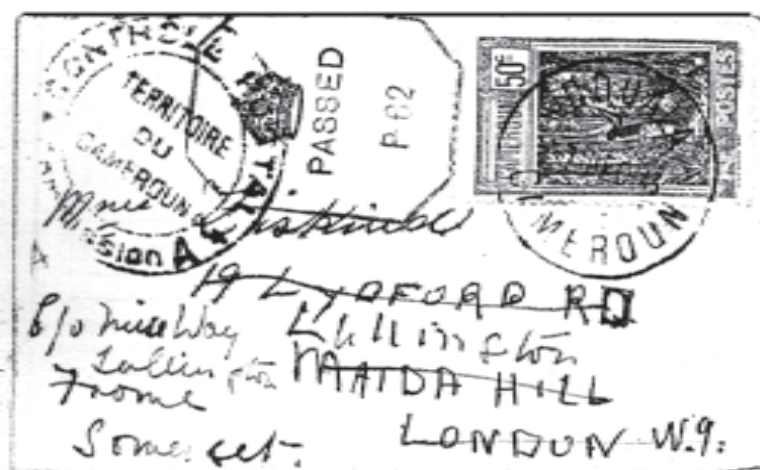 CONTRÔLE POSTAL
TERRITOIRE
DU
CAMEROUN
Commission A
PASSED
P. 62
50F
CAMEROUN
POSTES
CAMEROUN
19 LYDFORD RD
C/o Miss Way Lullington
Lullington MAIDA HILL
Frome
Somerset. LONDON W.9.